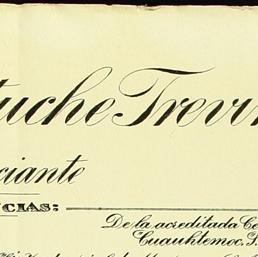 tuche Trevi
ciante
NCIAS:
De la acreditada Ce
Cuauhtemoc, S.